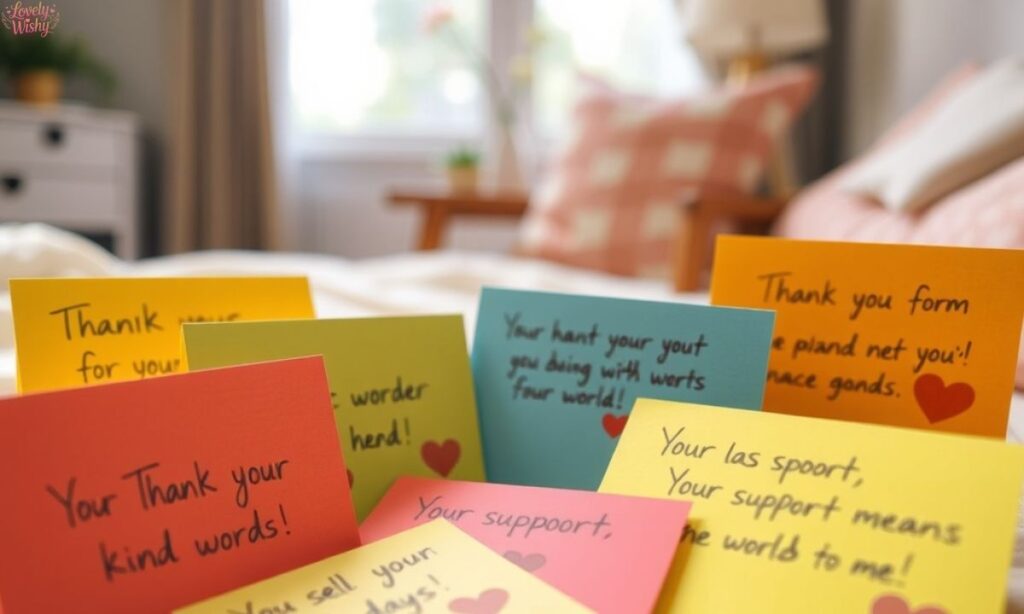 Lovely
Wishy
Thanik your
for your
worder
hend!
Your hant your yout
you doing with worts
four world!
Thank you form
e piand net you!
nace gonds.
Your Thank your
kind words!
Your suppoort,
Your las spoort,
Your support means
he world to me!
You sell youn
days!